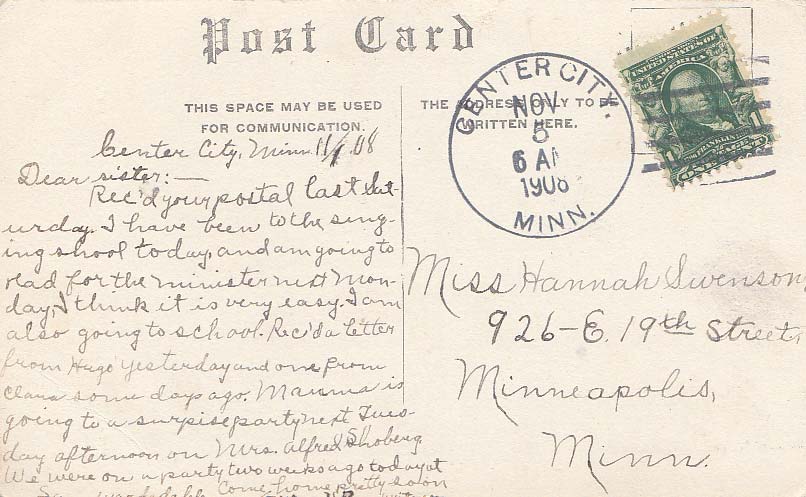 Post Card
THIS SPACE MAY BE USED
FOR COMMUNICATION.
THE ADDRESS ONLY TO BE
WRITTEN HERE.
CENTER CITY,
NOV
5
6 AM
1908
MINN.
UNITED STATES OF
AMERICA
1
FRANKLIN
ONE CENT
Center City, Minn 11/1 08
Dear sister:—
Rec'd your postal last Sat-
urday. I have been to the sing-
ing shool today, and am going to
read for the minister next Mon-
day, I think it is very easy. I am
also going to school. Rec'd a letter
from Hugo yesterday and one from
Clara some days ago. Mamma is
going to a surpise party next Tues-
day afternoon on Mrs. Alfred Shoberg
We were on a party two weeks ago today at
Come home pretty soon
Miss Hannah Swenson,
926-E. 19th Street,
Minneapolis,
Minn.